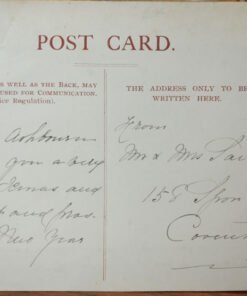 POST CARD.
S WELL AS THE BACK, MAY
USED FOR COMMUNICATION.
ice Regulation).
THE ADDRESS ONLY TO BE
WRITTEN HERE.
Ashbourn
you a very
Xmas and
and Pros.
New Year
From
Mr & Mrs
158 Spon
Coven